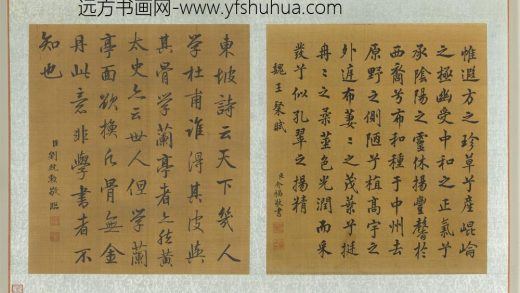 远方书画网-www.yfshuhua.com
惟遐方之珍草兮産崐崘
之極幽受中和之正氣兮
承陰陽之靈休揚豐馨於
西裔兮布和種于中州去
原野之側陋兮植高宇之
外庭布萋〻之茂葉兮挺
苒〻之柔莖色光潤而采
發兮似孔翠之揚精
魏王粲賦
臣介福敬書
東坡詩云天下幾人
學杜甫誰得其皮與
其骨學蘭亭者亦然黄
太史亦云世人但學蘭
亭面欲換凡骨無金
丹此意非學書者不
知也
臣劉統勳敬臨